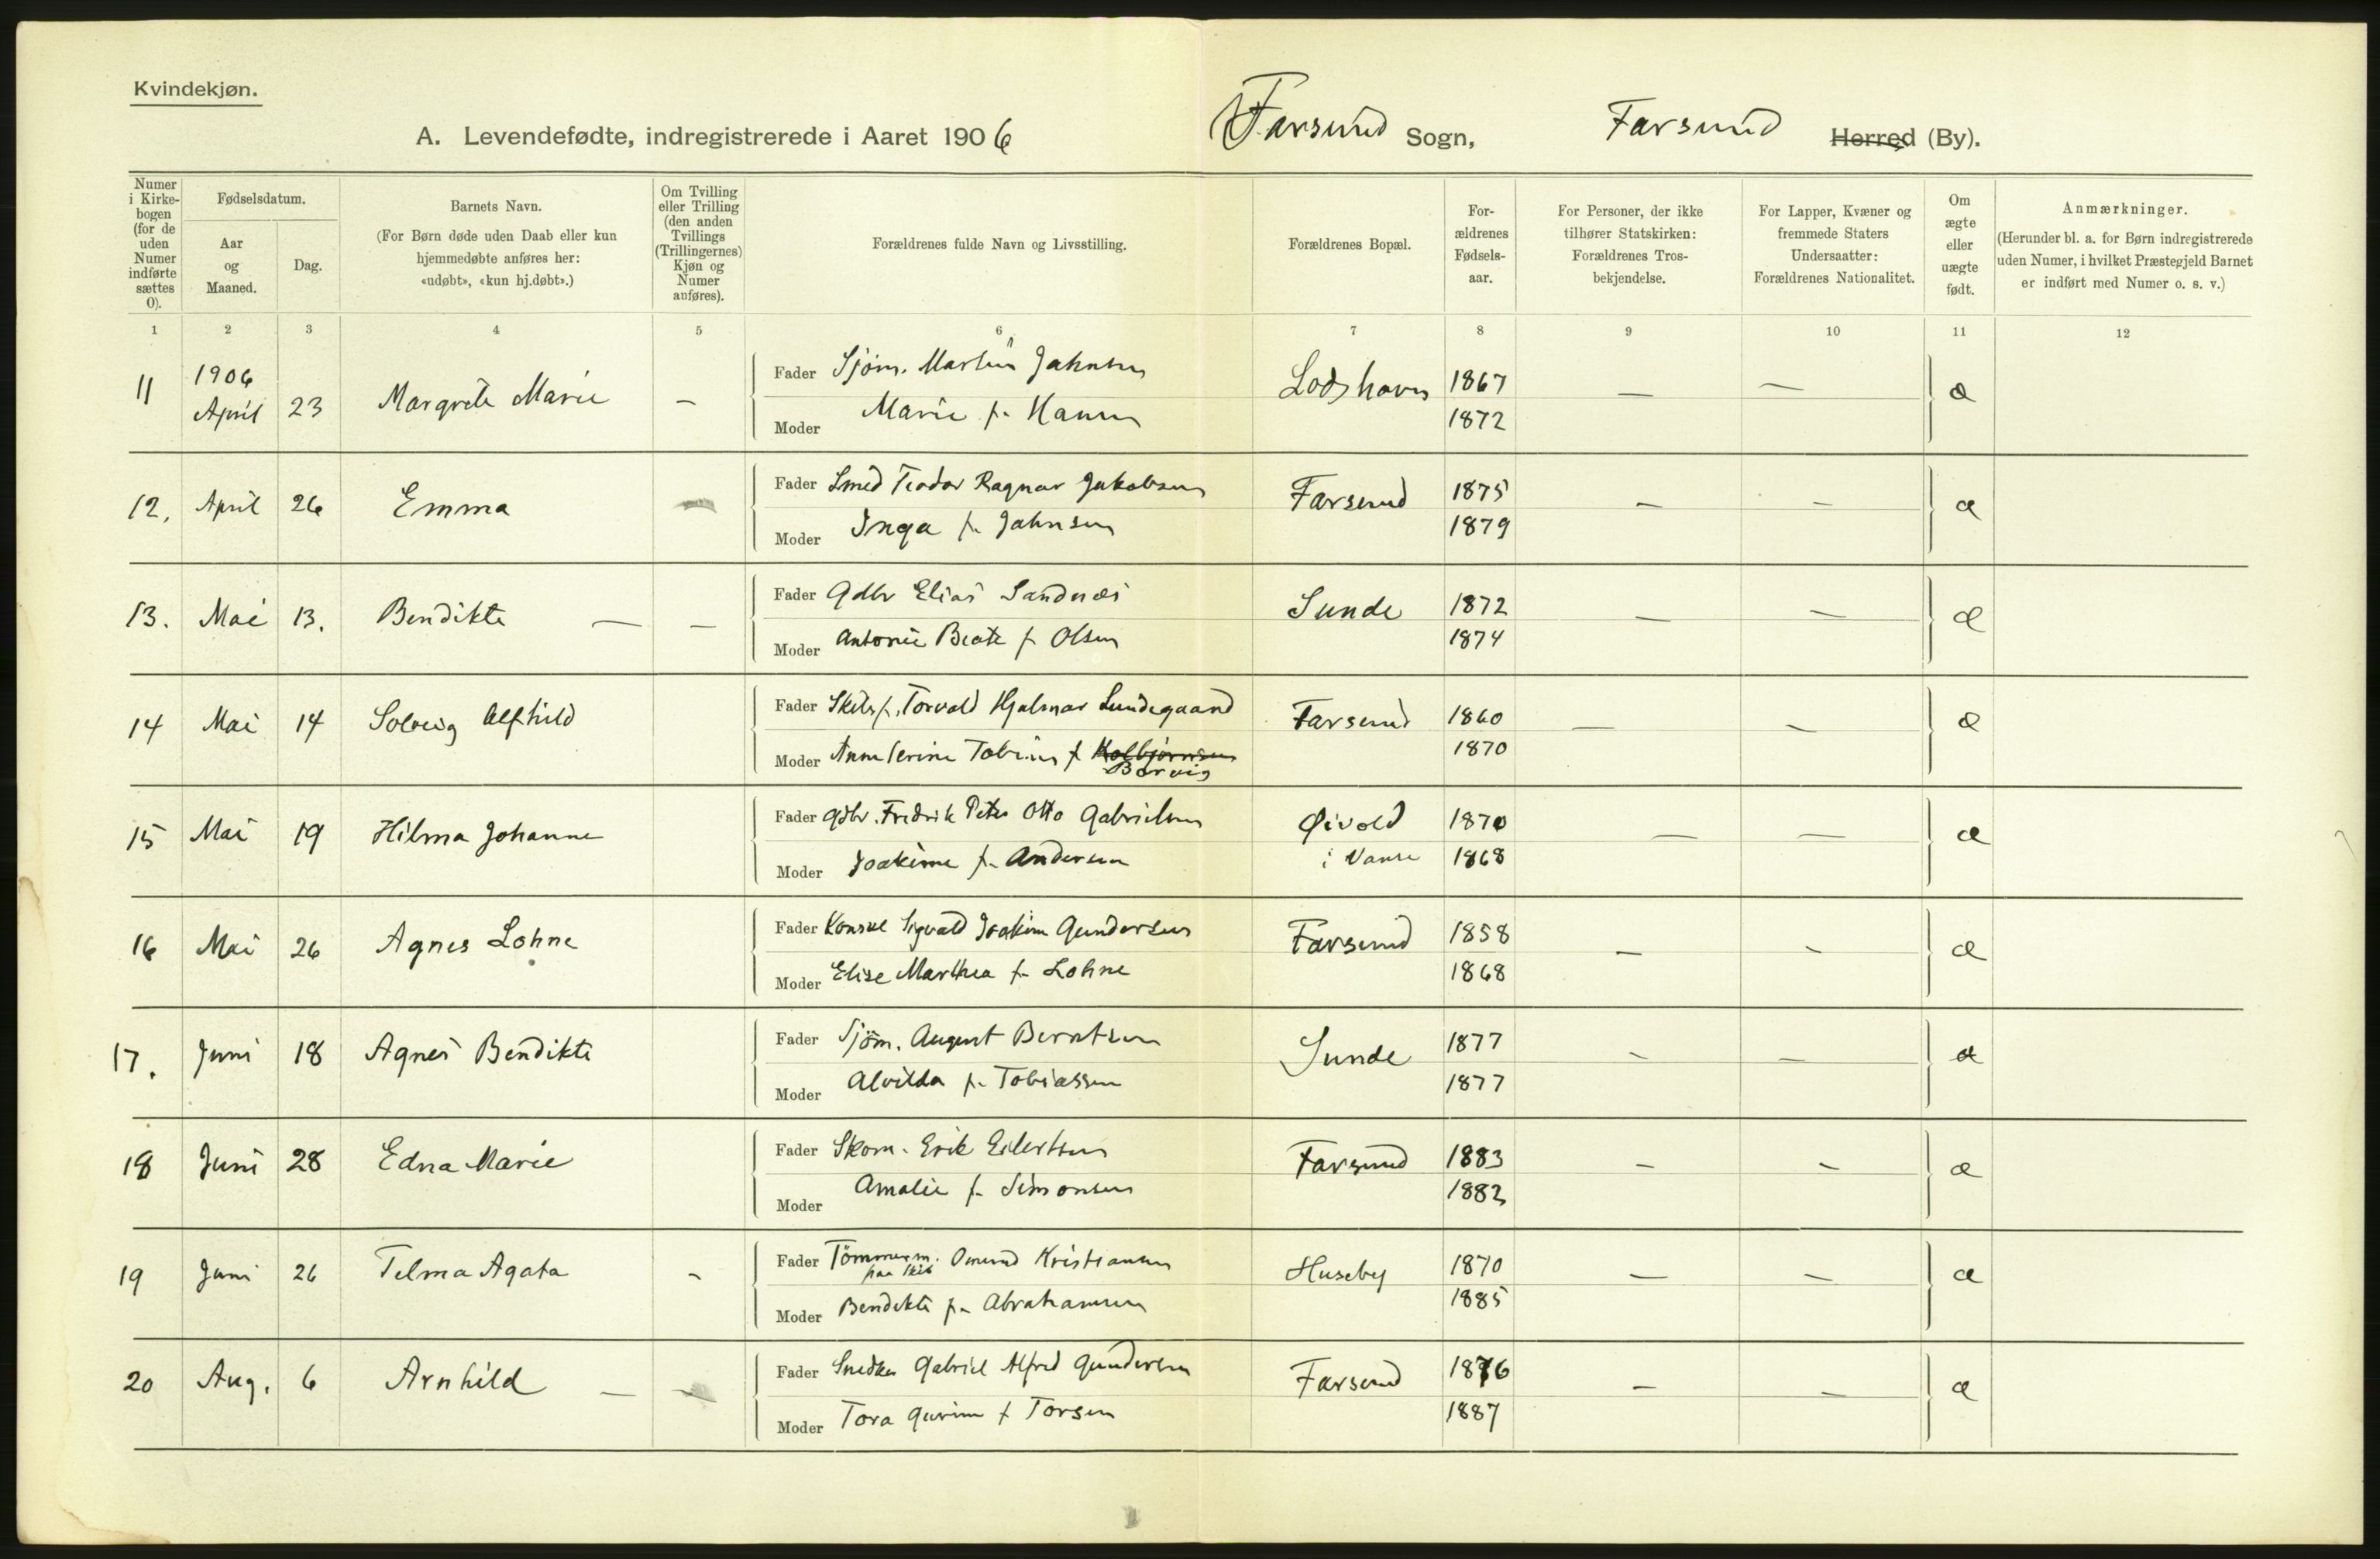 Kvindekjøn.
A. Levendefødte, indregistrerede i Aaret 1906 Farsund Sogn, Farsund Herred (By).
Numer i Kirkebogen (for de uden Numer indførte sættes 0).
Fødselsdatum.
Aar og Maaned.
Dag.
Barnets Navn.
(For Børn døde uden Daab eller kun hjemmedøbte anføres her: «udøbt», «kun hj.døbt».)
Om Tvilling eller Trilling (den anden Tvillings (Trillingernes) Kjøn og Numer anføres).
Forældrenes fulde Navn og Livsstilling.
Forældrenes Bopæl.
Forældrenes Fødselsaar.
For Personer, der ikke tilhører Statskirken: Forældrenes Trosbekjendelse.
For Lapper, Kvæner og fremmede Staters Undersaatter: Forældrenes Nationalitet.
Om ægte eller uægte født.
Anmærkninger.
(Herunder bl. a. for Børn indregistrerede uden Numer, i hvilket Præstegjeld Barnet er indført med Numer o. s. v.)
1 2 3 4 5 6 7 8 9 10 11 12
11 1906 April 23 Margrete Marie — Fader Sjøm. Martin Jahnsen Lodshavn 1867 — — æ
Moder Marie f. Hansen 1872
12. April 26 Emma — Fader Smed Teodor Ragnar Jakobsen Farsund 1875 — — æ
Moder Inga f. Jahnsen 1879
13. Mai 13. Bendikte — — Fader Gdbr Elias Sandnes Sunde 1872 — — æ
Moder Antonie Beate f. Olsen 1874
14 Mai 14 Solveig Alfhild Fader Skibsf. Torvald Hjalmar Lundegaard Farsund 1860 — — æ
Moder Anne Serine Tobine f Kolbjørnsen 1870
Borvig
15 Mai 19 Hilma Johanne Fader Gdbr. Fredrik Peter Otto Gabrielsen Øivold 1870 — — æ
Moder Joakime f. Andersen i Vanse 1868
16 Mai 26 Agnes Lohne Fader Konsul Sigvald Joakim Gundersen Farsund 1858 — — æ
Moder Elise Marthea f. Lohne 1868
17. Juni 18 Agnes Bendikte Fader Sjøm. August Berntsen Sunde 1877 — — æ
Moder Alvilda f. Tobiassen 1877
18 Juni 28 Edna Marie Fader Skom. Erik Eilertsen Farsund 1883 — — æ
Moder Amalie f. Simonsen 1882
19 Juni 26 Telma Agata — Fader Tömmerm. Omund Kristiansen Huseby 1870 — — æ
paa Skib
Moder Bendikte f. Abrahamsen 1885
20 Aug. 6 Arnhild — — Fader Snedker Gabriel Alfred Gundersen Farsund 1876 — — æ
Moder Tora Gurine f Torsen 1887